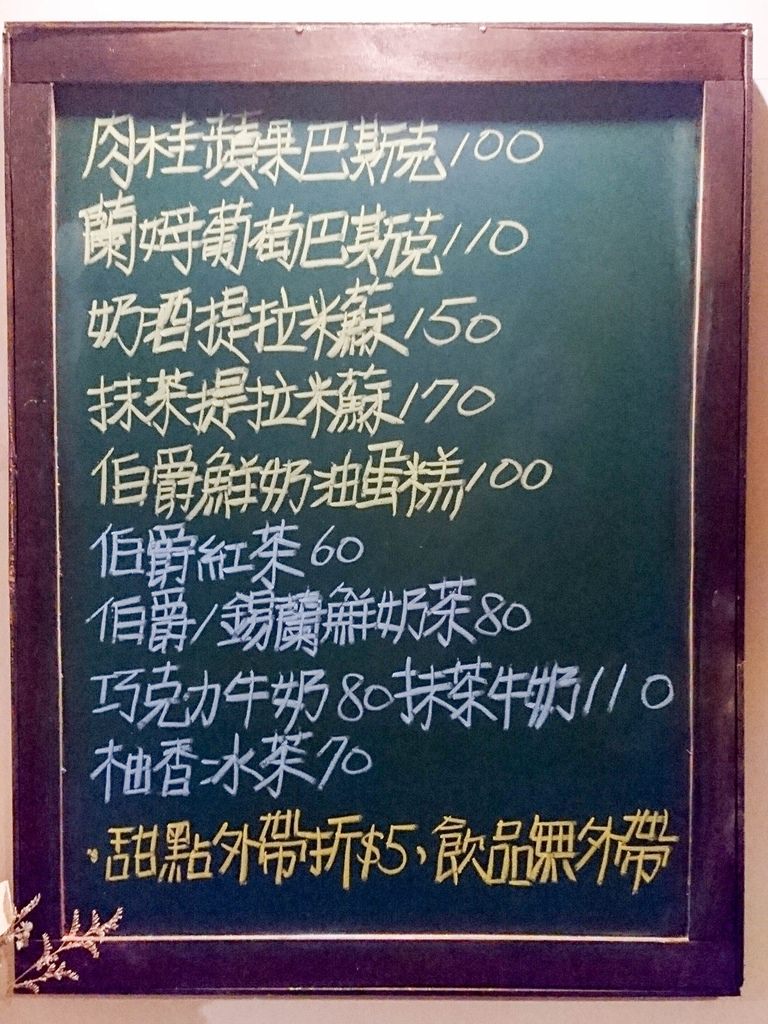 肉桂蘋果巴斯克100
蘭姆葡萄巴斯克110
奶酒提拉米蘇150
抹茶提拉米蘇170
伯爵鮮奶油蛋糕100
伯爵紅茶60
伯爵/錫蘭鮮奶茶80
巧克力牛奶80抹茶牛奶110
柚香冰茶70
·甜點外帶折$5、飲品無外帶